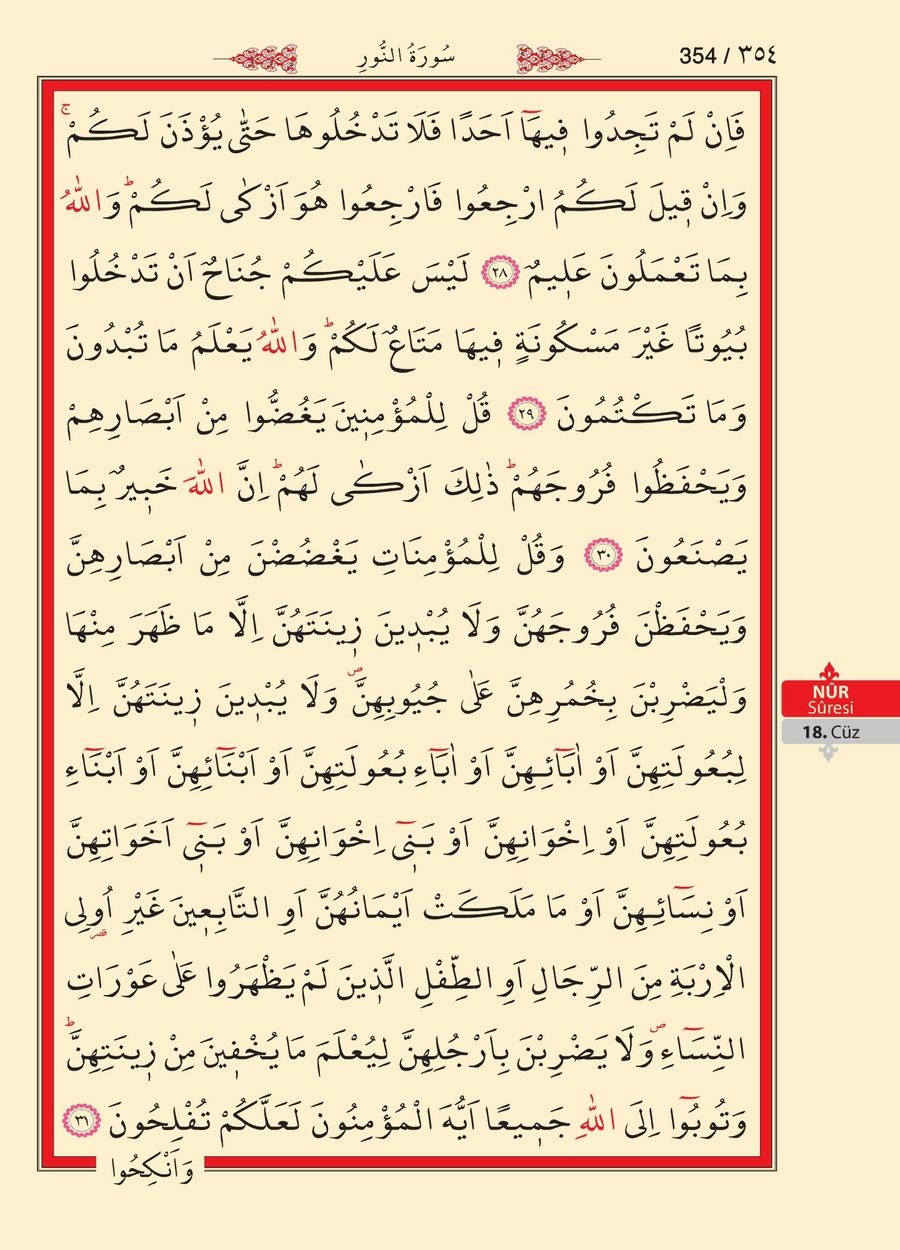 354 / ٣٥٤
سُورَةُ النُّورِ
فَاِنْ لَمْ تَجِدُوا فٖيهَٓا اَحَدًا فَلَا تَدْخُلُوهَا حَتّٰى يُؤْذَنَ لَكُمْۚ
وَاِنْ قٖيلَ لَكُمُ ارْجِعُوا فَارْجِعُوا هُوَ اَزْكٰى لَكُمْؕ وَاللّٰهُ
بِمَا تَعْمَلُونَ عَلٖيمٌ ﴿٢٨﴾ لَيْسَ عَلَيْكُمْ جُنَاحٌ اَنْ تَدْخُلُوا
بُيُوتًا غَيْرَ مَسْكُونَةٍ فٖيهَا مَتَاعٌ لَكُمْؕ وَاللّٰهُ يَعْلَمُ مَا تُبْدُونَ
وَمَا تَكْتُمُونَ ﴿٢٩﴾ قُلْ لِلْمُؤْمِنٖينَ يَغُضُّوا مِنْ اَبْصَارِهِمْ
وَيَحْفَظُوا فُرُوجَهُمْؕ ذٰلِكَ اَزْكٰى لَهُمْؕ اِنَّ اللّٰهَ خَبٖيرٌ بِمَا
يَصْنَعُونَ ﴿٣٠﴾ وَقُلْ لِلْمُؤْمِنَاتِ يَغْضُضْنَ مِنْ اَبْصَارِهِنَّ
وَيَحْفَظْنَ فُرُوجَهُنَّ وَلَا يُبْدٖينَ زٖينَتَهُنَّ اِلَّا مَا ظَهَرَ مِنْهَا
وَلْيَضْرِبْنَ بِخُمُرِهِنَّ عَلٰى جُيُوبِهِنَّࣕ وَلَا يُبْدٖينَ زٖينَتَهُنَّ اِلَّا
لِبُعُولَتِهِنَّ اَوْ اٰبَٓائِهِنَّ اَوْ اٰبَٓاءِ بُعُولَتِهِنَّ اَوْ اَبْنَٓائِهِنَّ اَوْ اَبْنَٓاءِ
بُعُولَتِهِنَّ اَوْ اِخْوَانِهِنَّ اَوْ بَنٖٓى اِخْوَانِهِنَّ اَوْ بَنٖٓى اَخَوَاتِهِنَّ
اَوْ نِسَٓائِهِنَّ اَوْ مَا مَلَكَتْ اَيْمَانُهُنَّ اَوِ التَّابِعٖينَ غَيْرِ اُولِى
الْاِرْبَةِ مِنَ الرِّجَالِ اَوِ الطِّفْلِ الَّذٖينَ لَمْ يَظْهَرُوا عَلٰى عَوْرَاتِ
النِّسَٓاءِࣕ وَلَا يَضْرِبْنَ بِاَرْجُلِهِنَّ لِيُعْلَمَ مَا يُخْفٖينَ مِنْ زٖينَتِهِنَّؕ
وَتُوبُٓوا اِلَى اللّٰهِ جَمٖيعًا اَيُّهَ الْمُؤْمِنُونَ لَعَلَّكُمْ تُفْلِحُونَ ﴿٣١﴾
وَاَنْكِحُوا
NÛR
Sûresi
18. Cüz